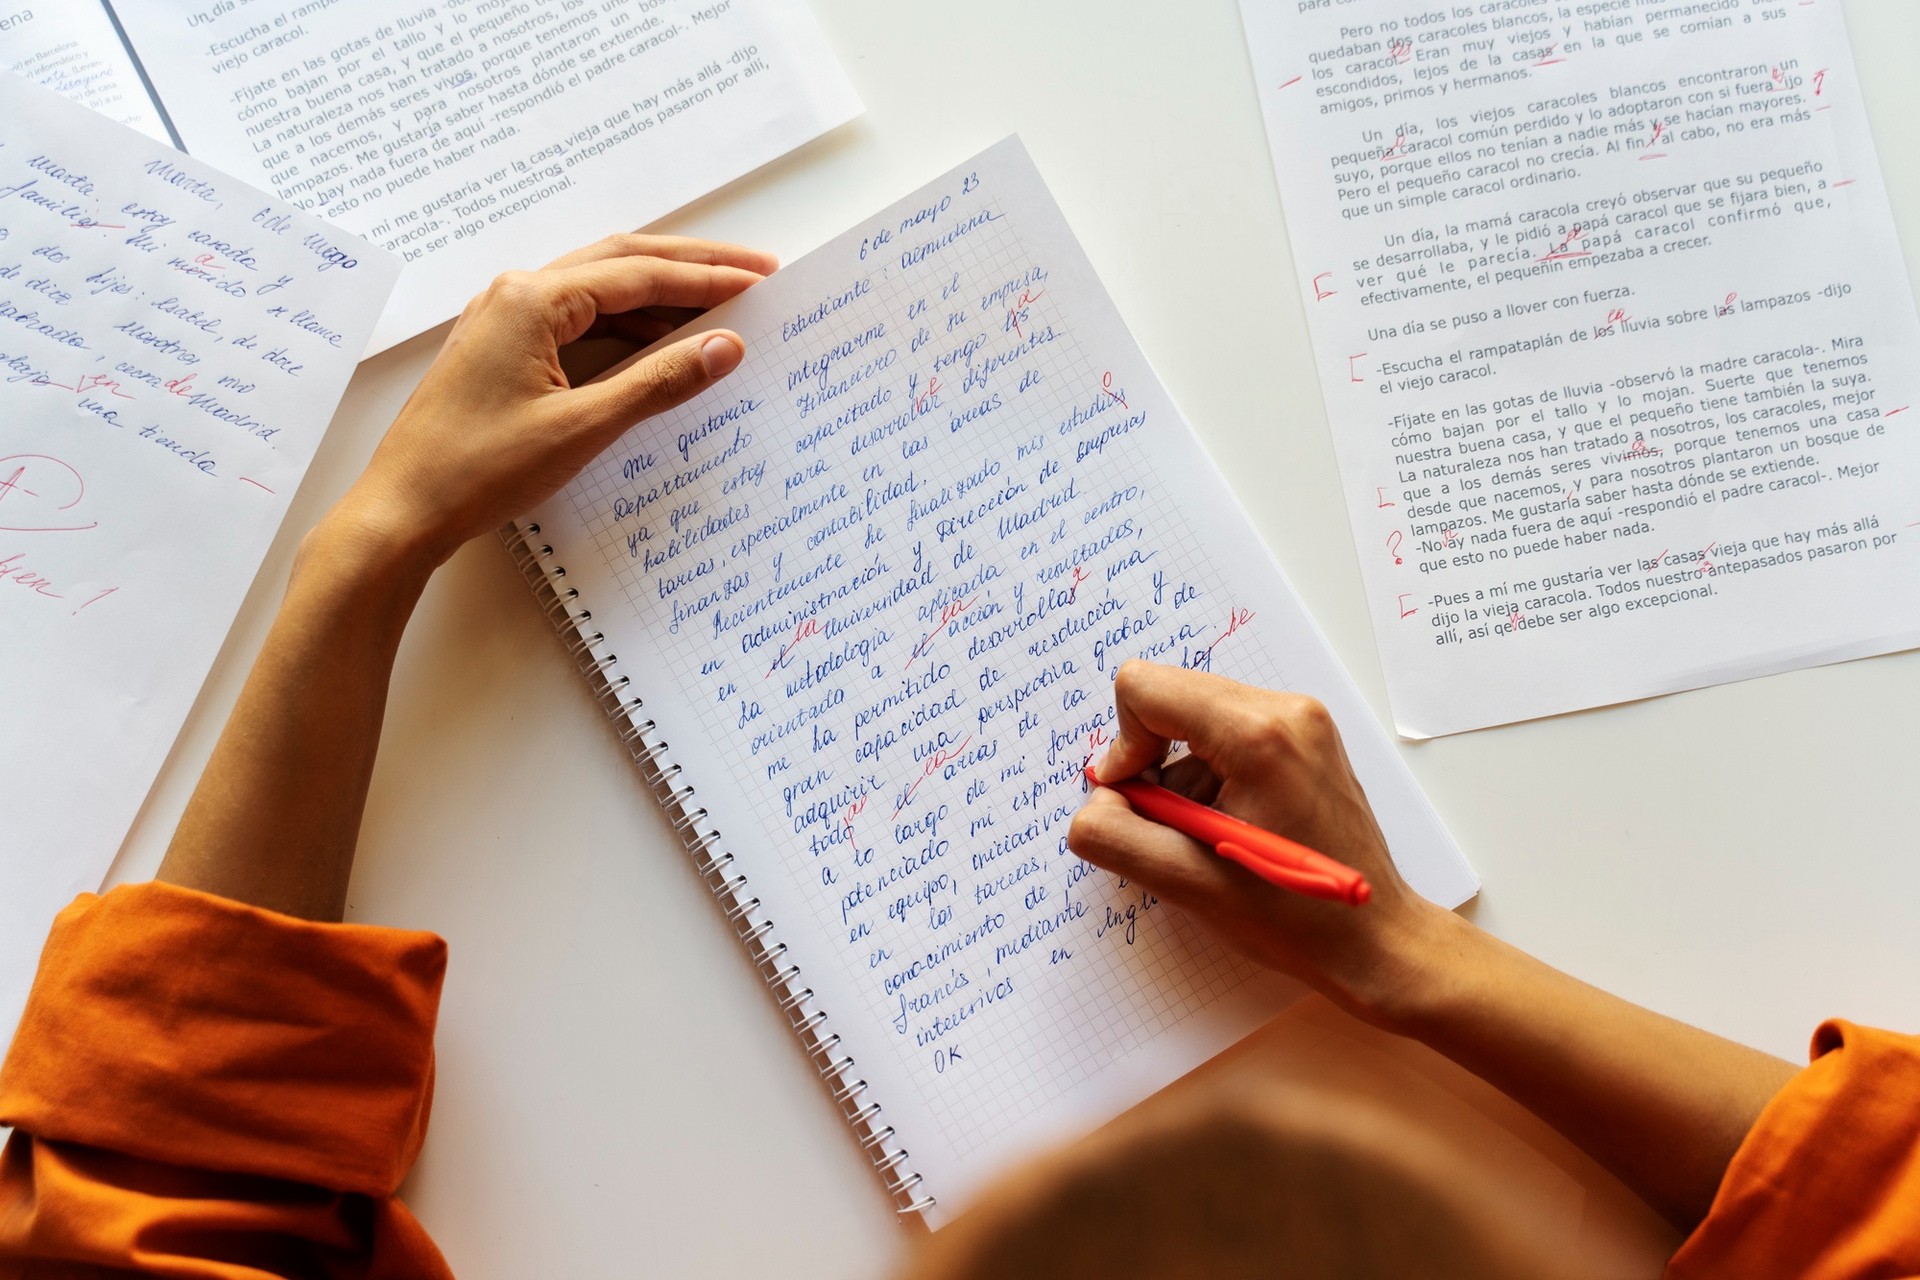 ena
en Barcelona
informático y
Un día se
-Escucha el rampa
viejo caracol.
-Fíjate en las gotas de lluvia -ob
cómo bajan por el tallo y lo moja
nuestra buena casa, y que el pequeño tie
La naturaleza nos han tratado a nosotros, los
que a los demás seres vivos, porque tenemos una
que nacemos, y para nosotros plantaron un bos
lampazos. Me gustaría saber hasta dónde se extiende.
-No hay nada fuera de aquí -respondió el padre caracol-. Mejor
esto no puede haber nada.
a mí me gustaría ver la casa vieja que hay más allá -dijo
aracola-. Todos nuestros antepasados pasaron por allí,
be ser algo excepcional.
Marta, 6 de mayo
Marta. estoy casada y
familia. Mi merido se llama
a
dos hijos: Isabel, de doce
de diez
Nosotros
cerca de Madrid.
en
una tienda
A-
bien!
6 de mayo 23
Estudiante: aemudena
Me gustaría integrarme en el
Departamento Financiero de su empresa,
ya que estoy capacitado y tengo los
a
habilidades para desarrolar diferentes
tareas, especialmente en las áreas de
finanzas y contabilidad.
Recientemente he finalizado mis estudios
o
en administración y Dirección de empresas
en el Universidad de Madrid.
la
La metodología aplicada en el centro,
orientada a el acción y resultados,
la
me ha permitido desarrollas una
r
gran capacidad de resducción y
adquirir una perspectiva global de
todo el areas de la empresa.
as la
a lo largo de mi formac
he
potenciado mi espiritu
en equipo, iniciativa
en las tareas,
cono-cimiento de id
francés, mediante
intensivos en Ingl
OK
Pero no todos los caracoles
quedaban dos caracoles blancos, la especie más
los caracol. Eran muy viejos y habían permanecido
escondidos, lejos de la casas en la que se comían a sus
amigos, primos y hermanos.
Un día, los viejos caracoles blancos encontraron un
pequeña caracol común perdido y lo adoptaron con si fuera ijo
suyo, porque ellos no tenían a nadie más y se hacían mayores.
Pero el pequeño caracol no crecía. Al fin y al cabo, no era más
que un simple caracol ordinario.
Un día, la mamá caracola creyó observar que su pequeño
se desarrollaba, y le pidió a papá caracol que se fijara bien, a
ver qué le parecía. La papá caracol confirmó que,
efectivamente, el pequeñin empezaba a crecer.
Una día se puso a llover con fuerza.
-Escucha el rampataplán de los lluvia sobre las lampazos -dijo
la
el viejo caracol.
-Fíjate en las gotas de lluvia -observó la madre caracola-. Mira
cómo bajan por el tallo y lo mojan. Suerte que tenemos
nuestra buena casa, y que el pequeño tiene también la suya.
La naturaleza nos han tratado a nosotros, los caracoles, mejor
que a los demás seres vivimos, porque tenemos una casa
desde que nacemos, y para nosotros plantaron un bosque de
lampazos. Me gustaría saber hasta dónde se extiende.
-No ay nada fuera de aquí -respondió el padre caracol-. Mejor
que esto no puede haber nada.
-Pues a mí me gustaría ver las casas vieja que hay más allá
dijo la vieja caracola. Todos nuestro antepasados pasaron por
allí, así qe debe ser algo excepcional.